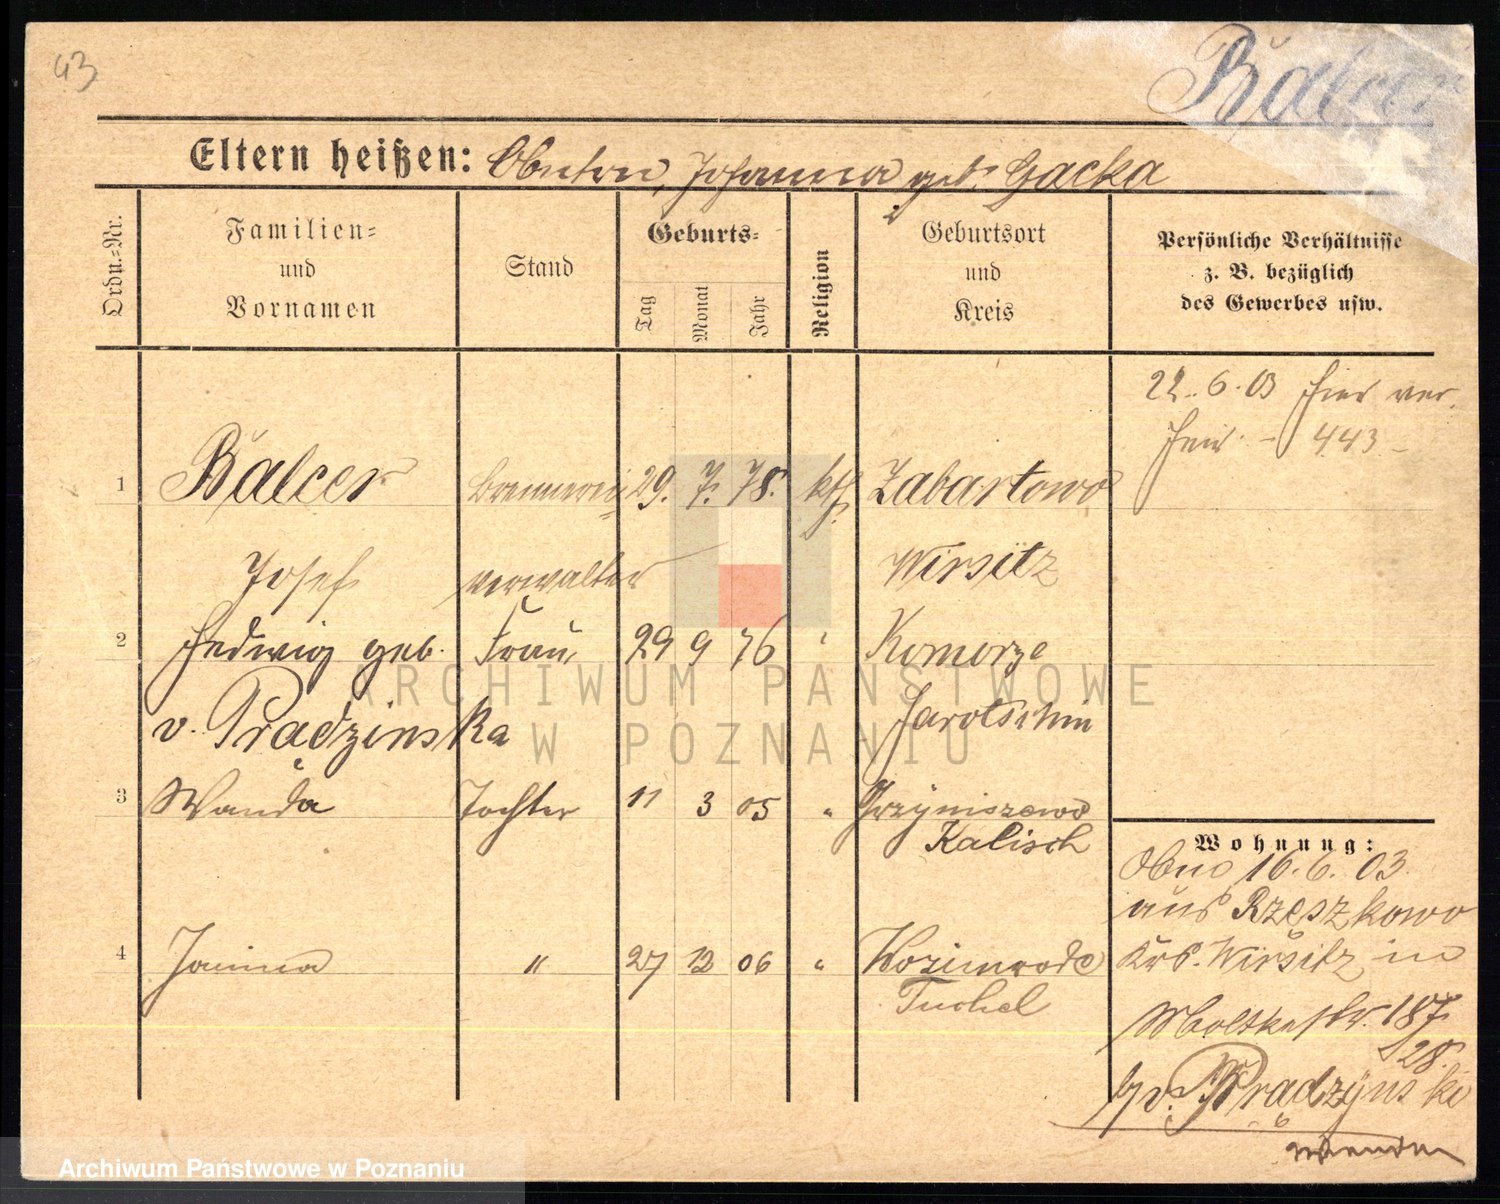 43
Balcer
Eltern heißen: Anton, Johanna geb. Gacka
Ordn.-Nr.
Familien-
und
Vornamen
Stand
Geburts-
Tag
Monat
Jahr
Religion
Geburtsort
und
Kreis
Persönliche Verhältnisse
z. B. bezüglich
des Gewerbes usw.
22.6.03 hier ver.
heir. - 443 -
1 Balcer Brennerei 29. 7. 78. kth. Zabartowo
Josef verwalter Wirsitz
2 Hedwig geb. Frau 29 9 76 " Komorze
v. Prądzinska Jarotschin
3 Wanda Tochter 11 3 05 " Grzyniszewo
Kalisch
4 Janina " 27 12 06 "
Tuchel
Wohnung:
16.6.03
aus Rzeszkowo
Krs. Wirsitz in
Moltkestr. 187
28.
b/v. Prądzyński
wenden
ARCHIWUM PAŃSTWOWE
W POZNANIU
Archiwum Państwowe w Poznaniu